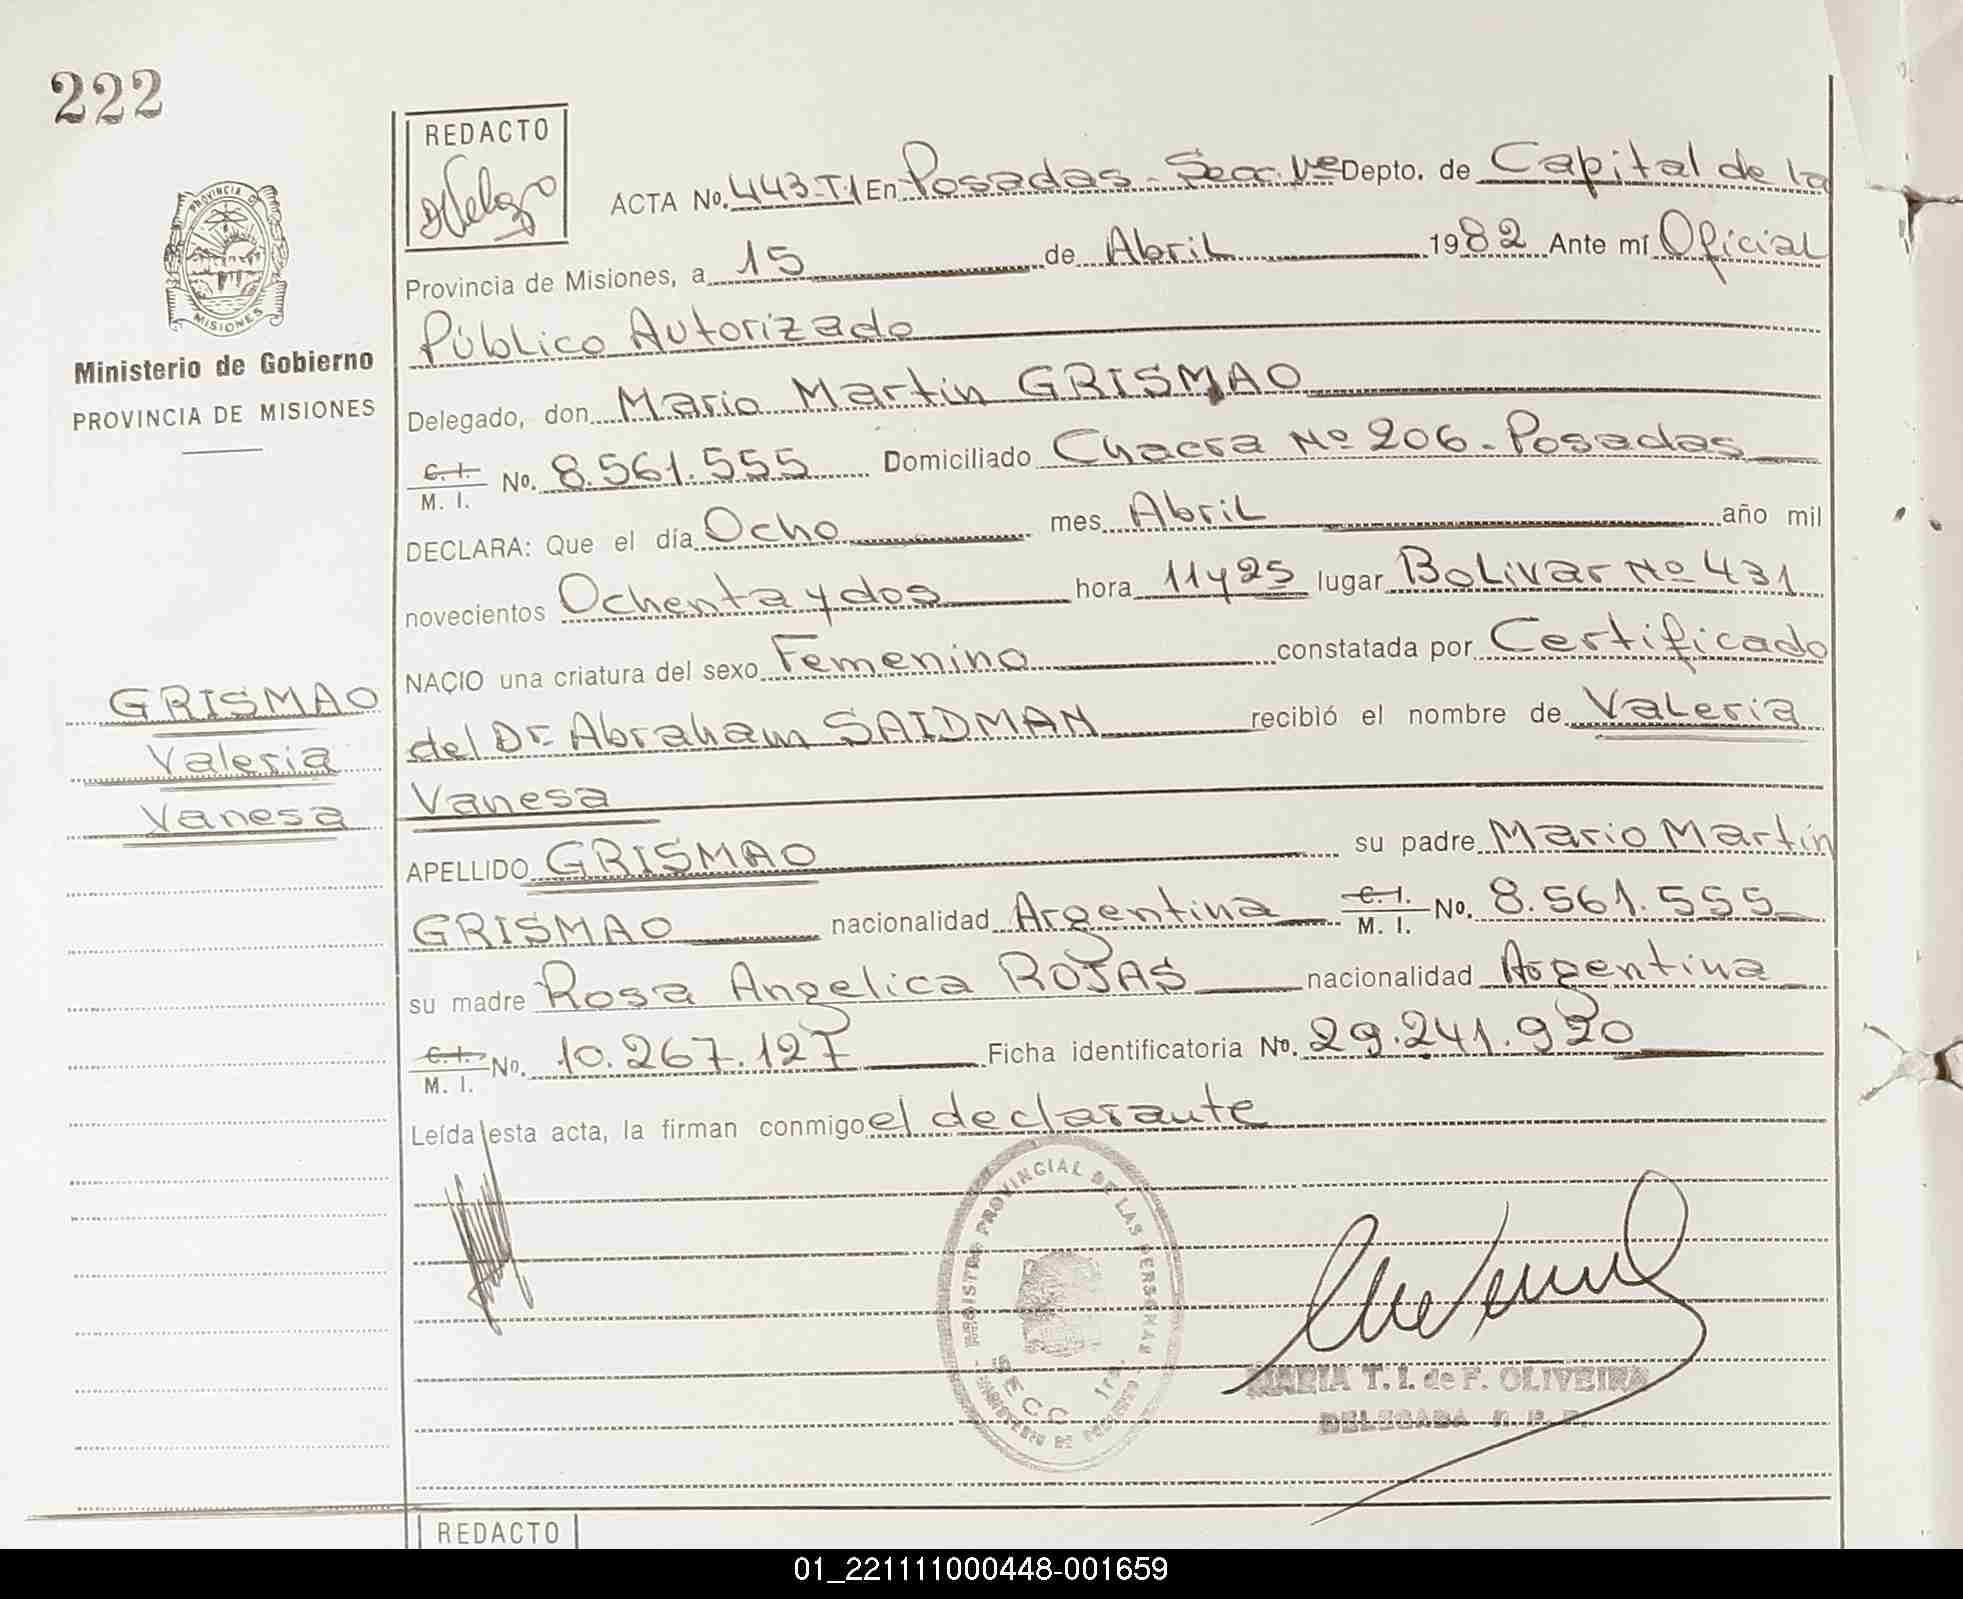 222
REDACTO
ACTA No. 443-T.1 En Posadas - Secc. 1ra Depto. de Capital de la
PROVINCIA DE
MISIONES
Provincia de Misiones, a 15 de Abril 1982 Ante mí Oficial
Público Autorizado
Ministerio de Gobierno
PROVINCIA DE MISIONES
Delegado, don Mario Martin GRISMAO
C. I. M. I. No. 8.561.555 Domiciliado Chacra Nº 206 - Posadas
DECLARA: Que el día Ocho mes Abril año mil
novecientos Ochenta y dos hora 11 y 25 lugar Bolivar Nº 431
NACIO una criatura del sexo Femenino constatada por Certificado
GRISMAO
Valeria
Vanesa
del Dr. Abraham SAIDMAN recibió el nombre de Valeria
Vanesa
APELLIDO GRISMAO su padre Mario Martín
GRISMAO nacionalidad Argentina C. I. M. I. No. 8.561.555
su madre Rosa Angelica ROJAS nacionalidad Argentina
C. I. M. I. No. 10.267.127 Ficha identificatoria No. 29.241.920
Leída esta acta, la firman conmigo el declarante
REGISTRO PROVINCIAL DE LAS PERSONAS
SECC. 1ra.
MARIA T. I. de F. OLIVEIRA
DELEGADA R. P. P.
REDACTO
01_221111000448-001659